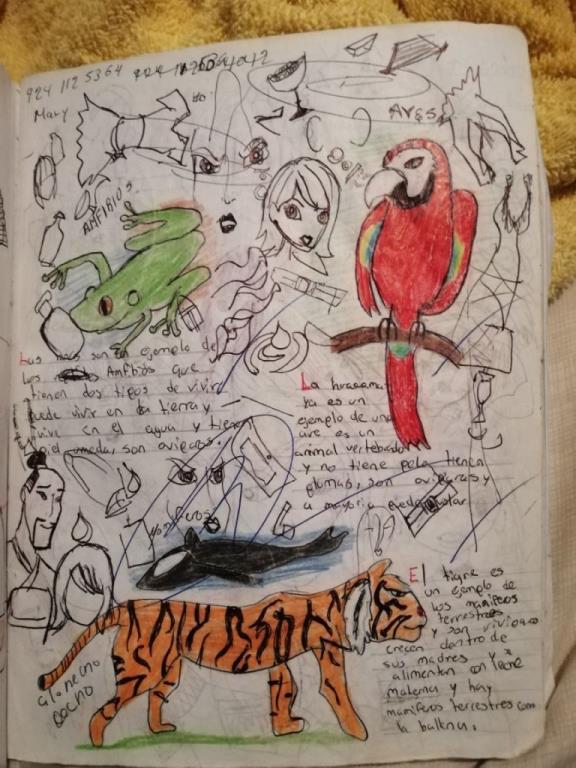 924 112 5364
Mary
AVES
ANFIBIOS
Las son un ejemplo de
Los Anfibios que
tienen dos tipos de vivir
puede vivir en la tierra y
vive en el agua y tienen
piel umeda, son oviparos.
La
ya es un
ejemplo de una
ave es un
animal vertebrado
y no tiene pelo tienen
plumas, son oviparas y
a mayoria puede volar
El tigre es
un ejemplo de
los mamiferos
terrestres
y son viviparos
crecen dentro de
sus madres y
alimentan con leche
materna y hay
mamiferos terrestres com
la ballena.